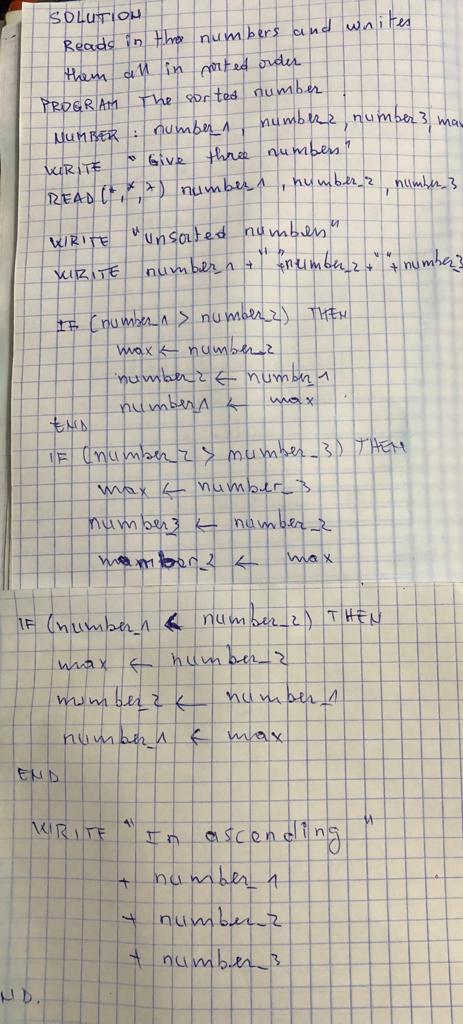 SOLUTION
Reads in thre numbers and writes
them all in sorted order
PROGRAM The sorted number
NUMBER : number_1, number_2, number_3, max
WRITE "Give three numbers"
READ (*, *, *) number_1, number_2, number_3
WRITE "unsorted numbers"
WRITE number_1 + " " + number_2 + " " + number_3
IF (number_1 > number_2) THEN
max ← number_2
number_2 ← number_1
number_1 ← max
END
IF (number_2 > number_3) THEN
max ← number_3
number_3 ← number_2
number_2 ← max
IF (number_1 < number_2) THEN
max ← number_2
number_2 ← number_1
number_1 ← max
END
WRITE "In ascending"
+ number_1
+ number_2
+ number_3
ND.